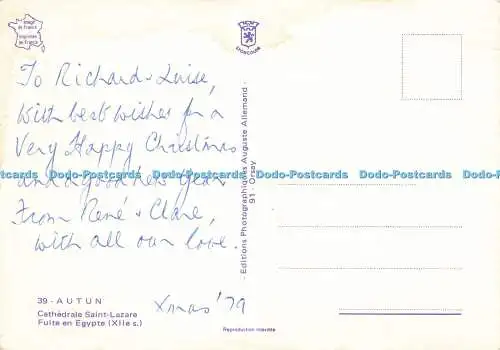 Image
de France
Imprimée
en France
To Richard & Luise,
With best wishes for a
Very Happy Christmas
and a good new Year
From René & Clare,
with all our love.
Xmas '79
39 - AUTUN
Cathédrale Saint-Lazare
Fuite en Egypte (XIIe s.)
Reproduction interdite
- Editions Photographiques Auguste Allemand -
91 - Orsay
Postcards Postcards Postcards Postcards Postcards